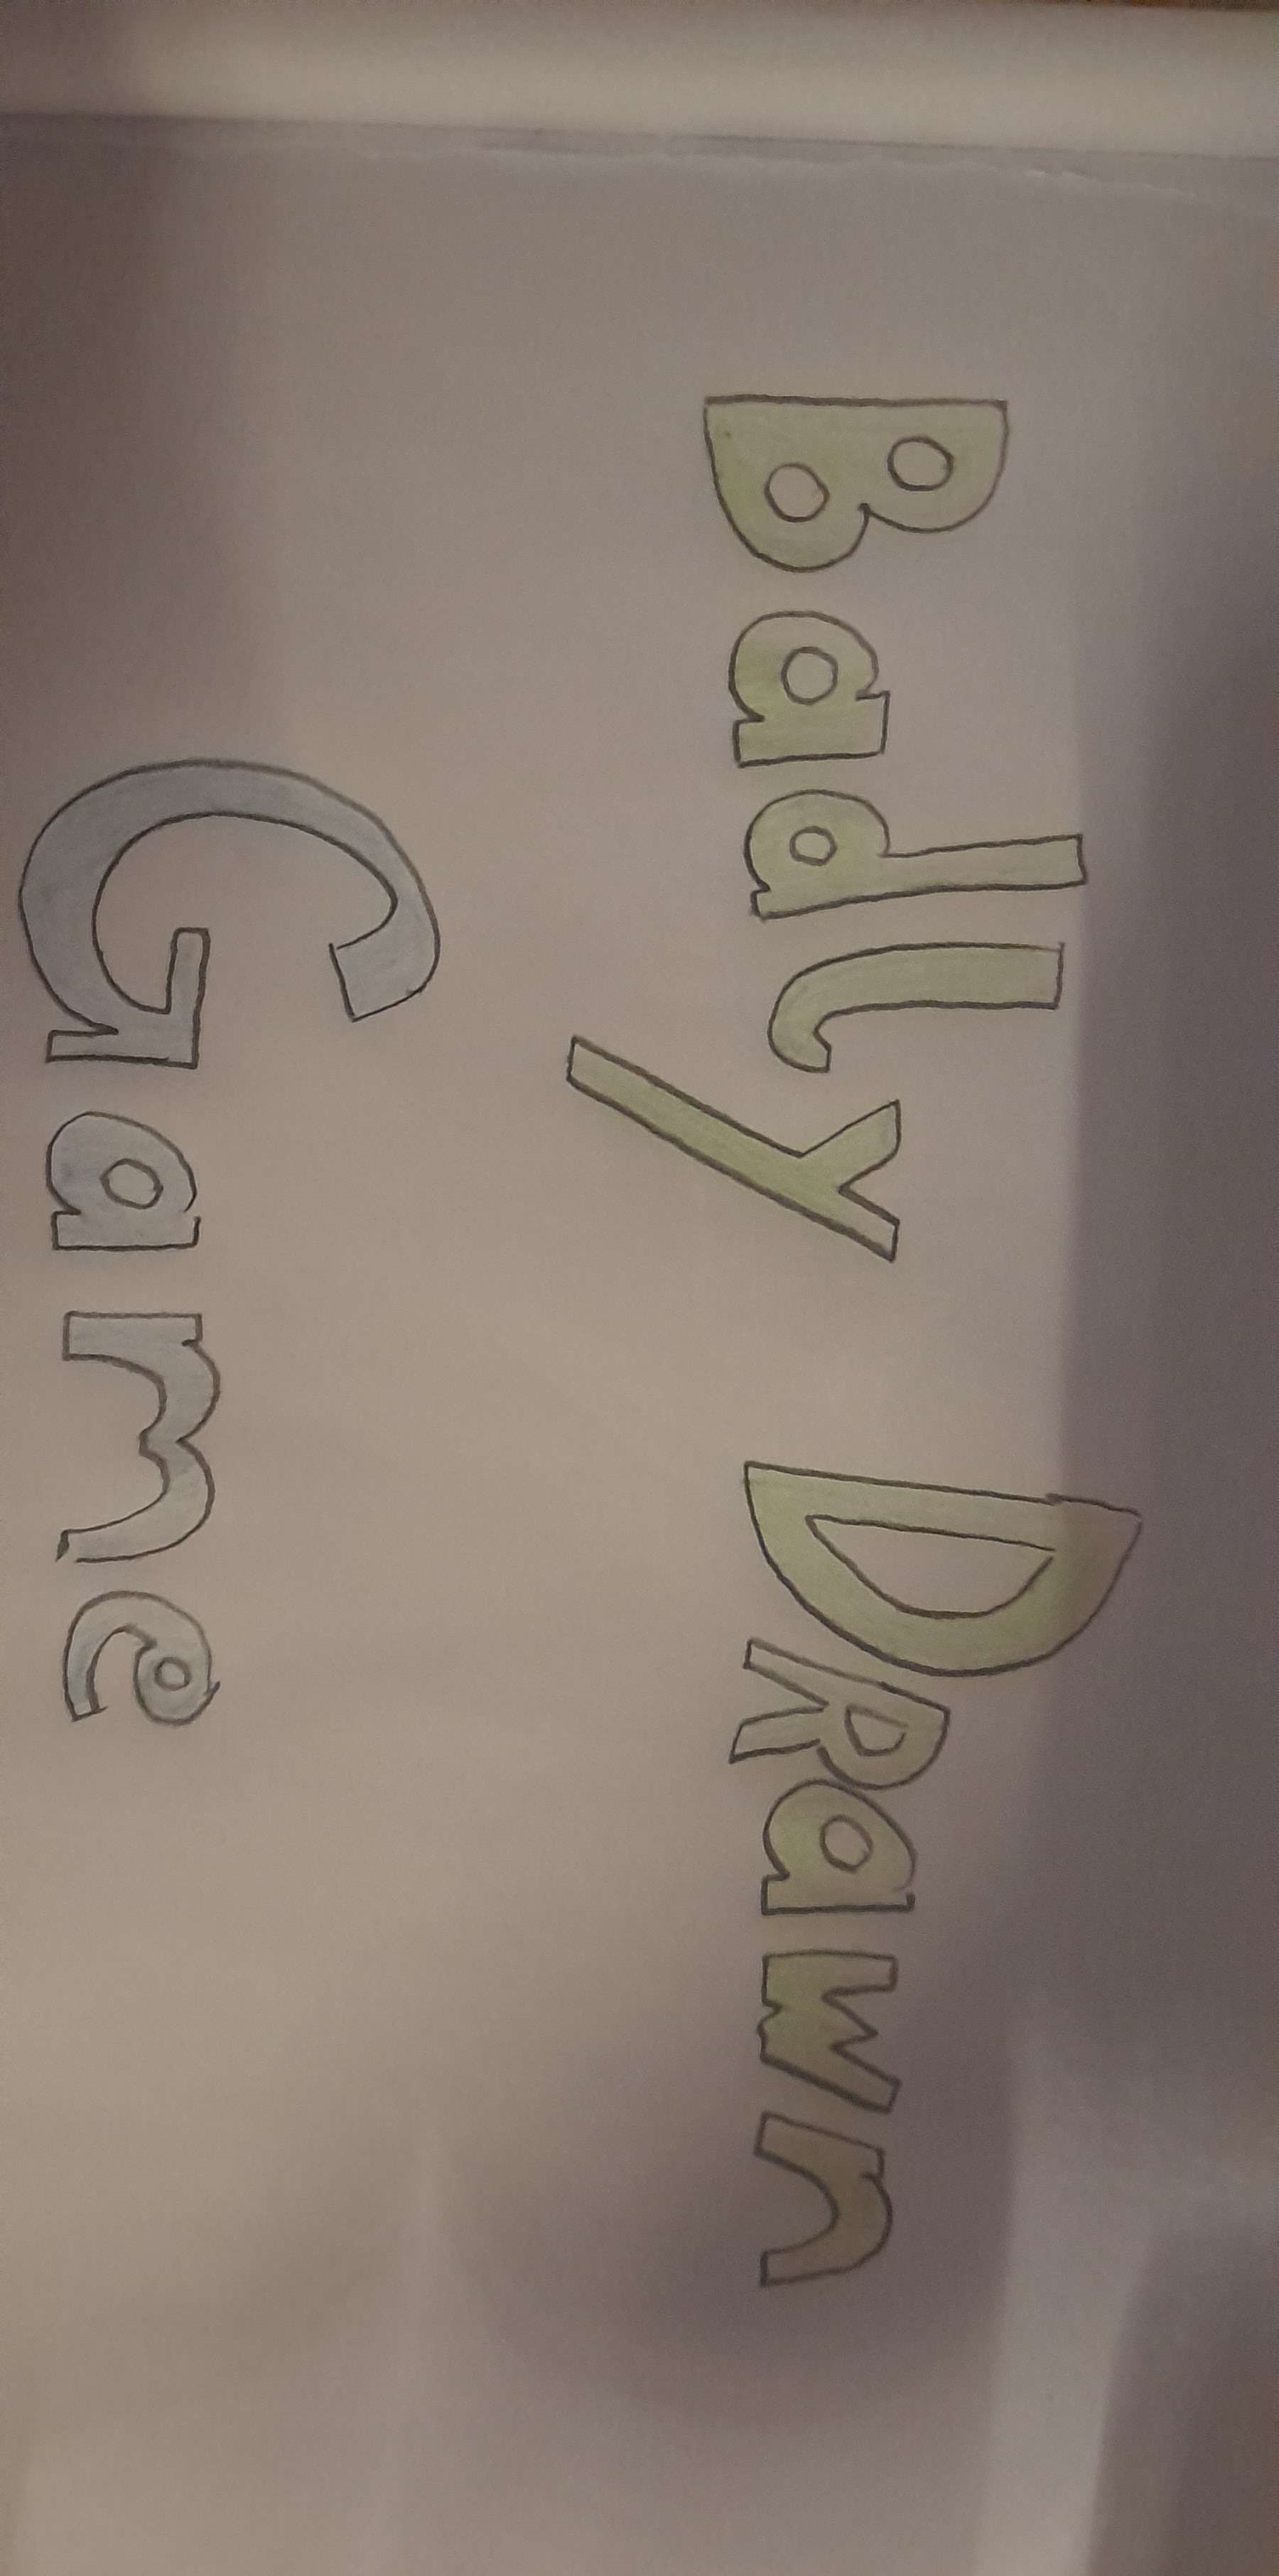 Badly DRawn
Game